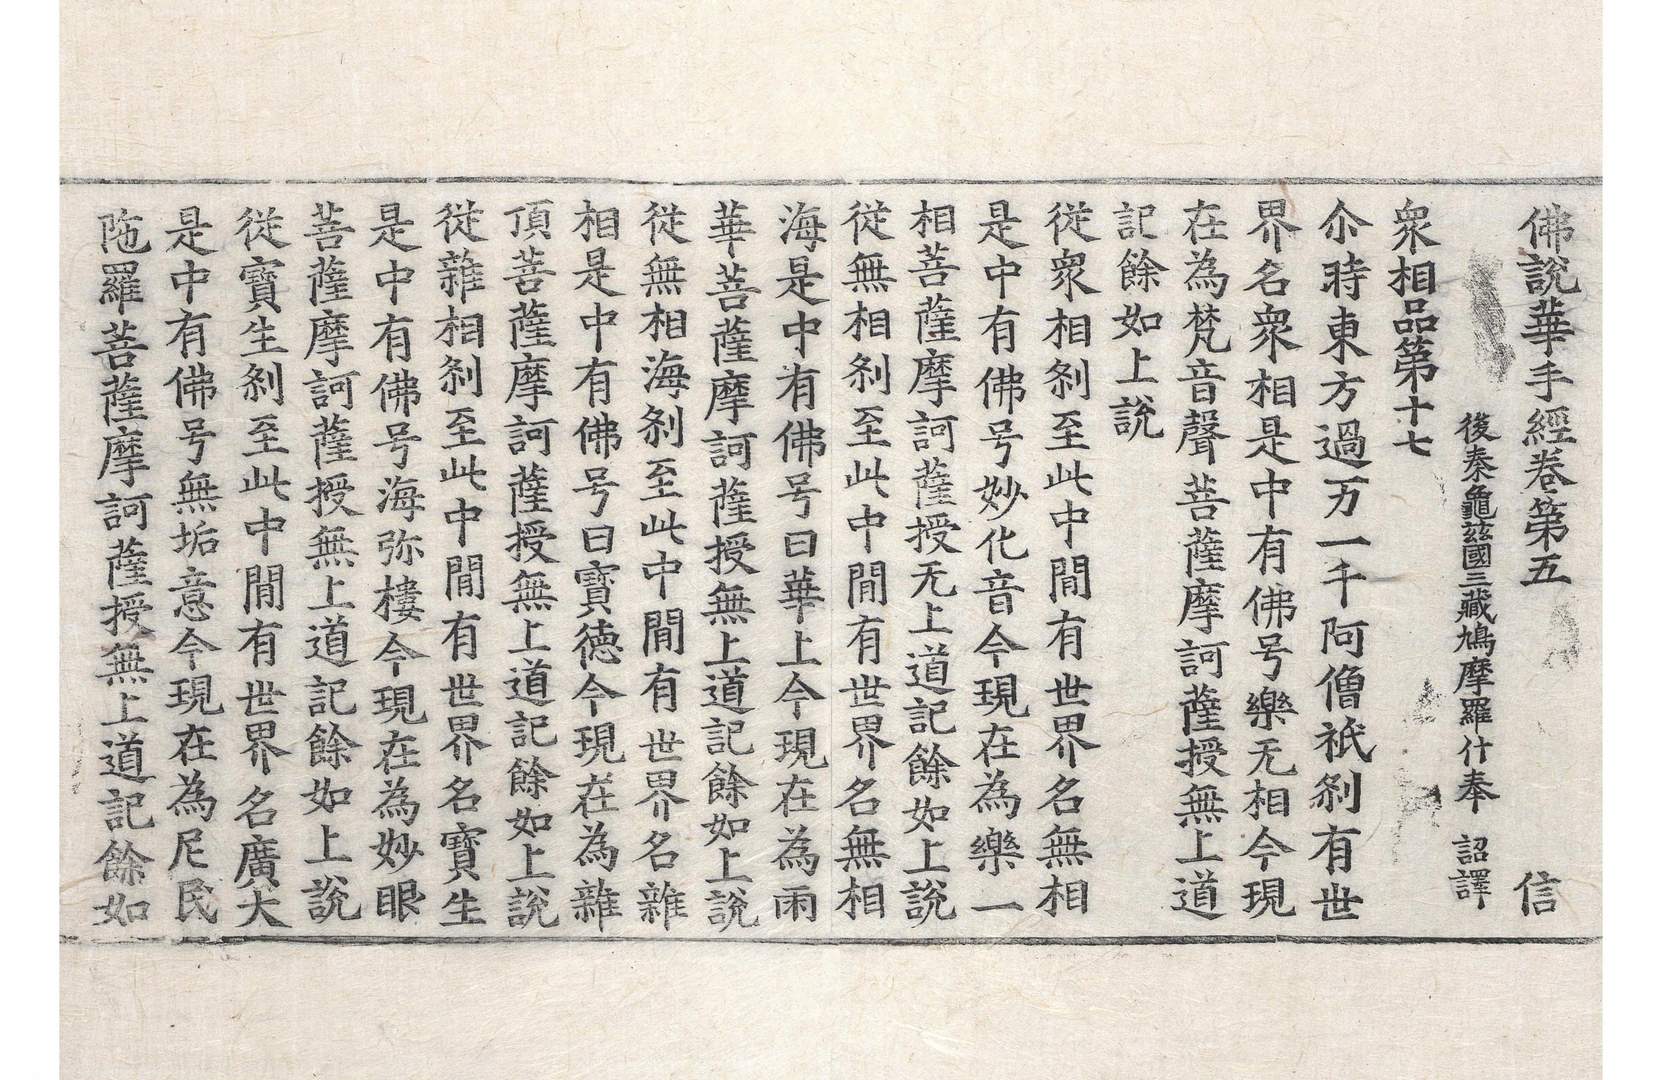 佛說華手經卷第五　信
後秦龜茲國三藏鳩摩羅什奉　詔譯
衆相品第十七
尒時東方過万一千阿僧祇剎有世
界名衆相是中有佛号樂无相今現
在為梵音聲菩薩摩訶薩授無上道
記餘如上說
從衆相剎至此中閒有世界名無相
是中有佛号妙化音今現在為樂一
相菩薩摩訶薩授无上道記餘如上說
從無相剎至此中閒有世界名無相
海是中有佛号曰華上今現在為雨
華菩薩摩訶薩授無上道記餘如上說
從無相海剎至此中閒有世界名雜
相是中有佛号曰寶德今現在為雜
頂菩薩摩訶薩授無上道記餘如上說
從雜相剎至此中閒有世界名寶生
是中有佛号海弥樓今現在為妙眼
菩薩摩訶薩授無上道記餘如上說
從寶生剎至此中閒有世界名廣大
是中有佛号無垢意今現在為尼民
陁羅菩薩摩訶薩授無上道記餘如